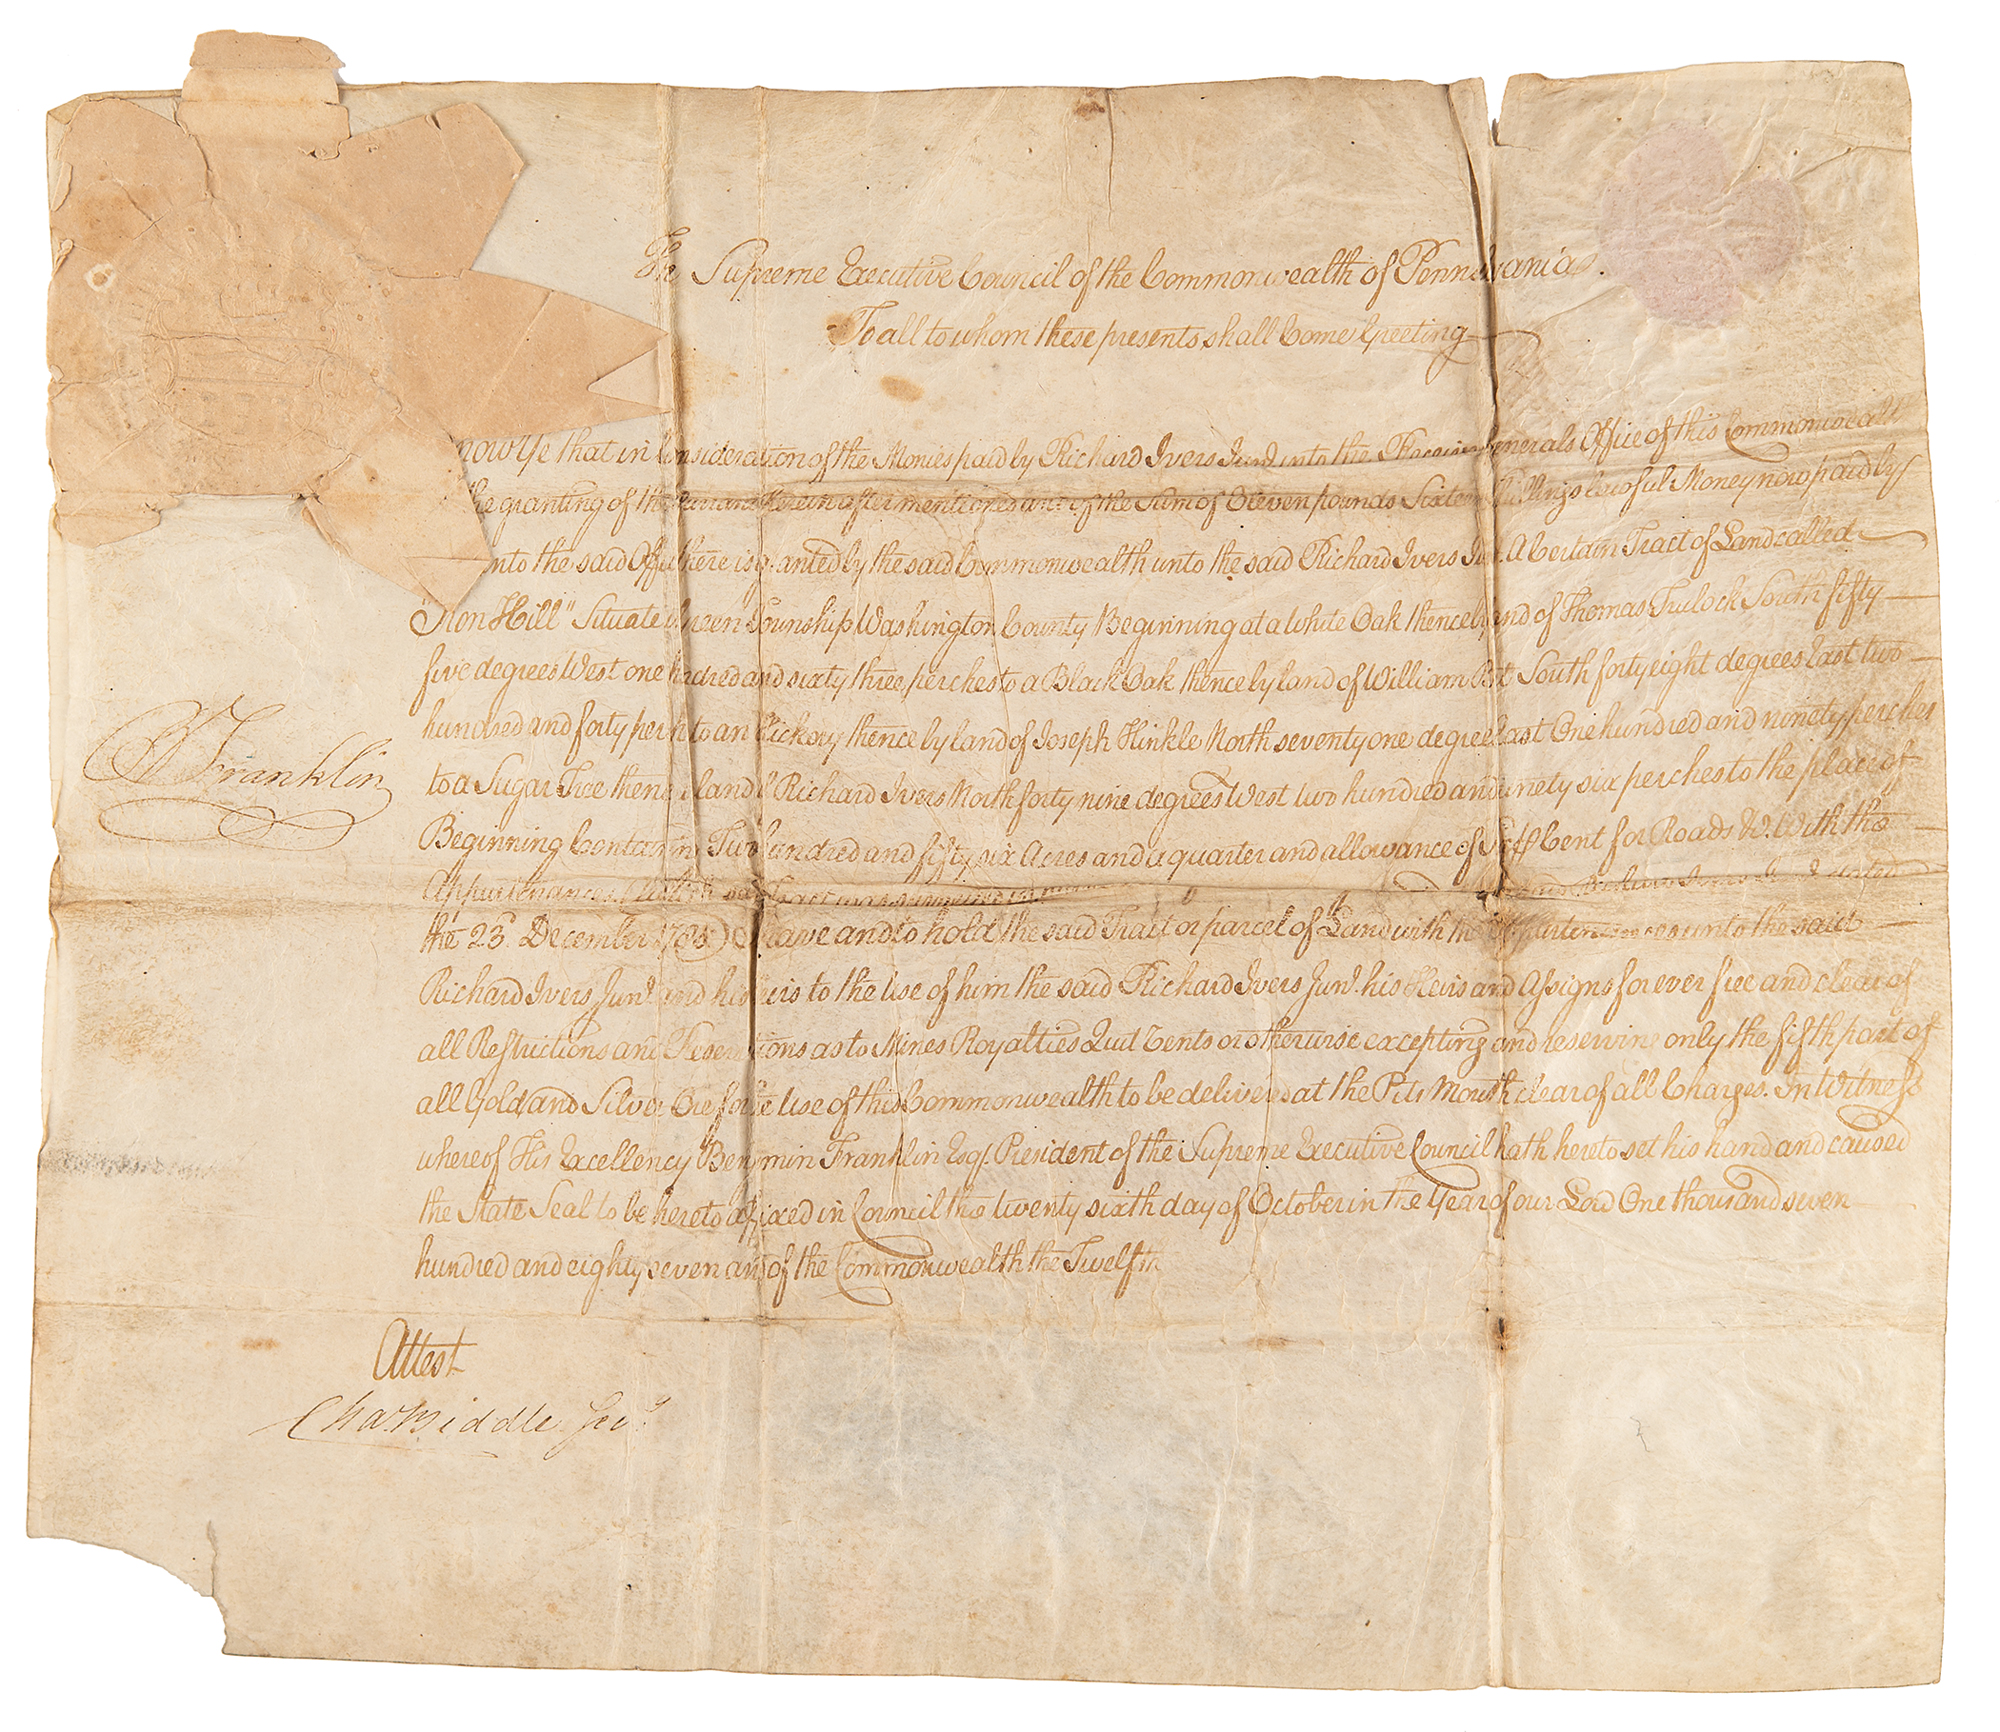 The Supreme Executive Council of the Commonwealth of Pennsylvania.
To all to whom these presents shall Come Greeting
now Ye that in Consideration of the Monies paid by Richard Ivers Junr. into the Receiver Generals Office of this Commonwealth
the granting of the Warrant herein after mentioned and of the Sum of Eleven pounds Sixteen Shillings lawful Money now paid by
into the said Office there is granted by the said Commonwealth unto the said Richard Ivers Junr. A Certain Tract of Land called
"Iron Hill" Situate Township Washington County Beginning at a White Oak thence by land of Thomas Tulock South fifty
five degrees West one hundred and sixty three perches to a Black Oak thence by land of William South forty eight degrees East two
hundred and forty perch to an Hickory thence by land of Joseph Hinkle North seventy one degrees East One hundred and ninety perches
to a Sugar Tree thence land of Richard Ivers North forty nine degrees West two hundred and ninety six perches to the place of
Beginning Containing Two hundred and fifty six Acres and a quarter and allowance of Six Cent for Roads &c. With the
Appurtenances (Which said Tract was surveyed in said Ivers Junr. dated
the 23d. December 1785) To Have and to hold the said Tract or parcel of Land with the Appurtenances unto the said
Richard Ivers Junr. and his Heirs to the Use of him the said Richard Ivers Junr. his Heirs and Assigns for ever free and clear of
all Restrictions and Reservations as to Mines Royalties Quit Rents or otherwise excepting and reserving only the fifth part of
all Gold and Silver Ore for the Use of this Commonwealth to be delivered at the Pits Mouth clear of all Charges. In Witness
whereof His Excellency Benjamin Franklin Esqr. President of the Supreme Executive Council hath hereto set his hand and caused
the State Seal to be hereto affixed in Council the twenty sixth day of October in the Year of our Lord One thousand seven
hundred and eighty seven and of the Commonwealth the Twelfth
B Franklin
Attest
Cha. Biddle Secy.